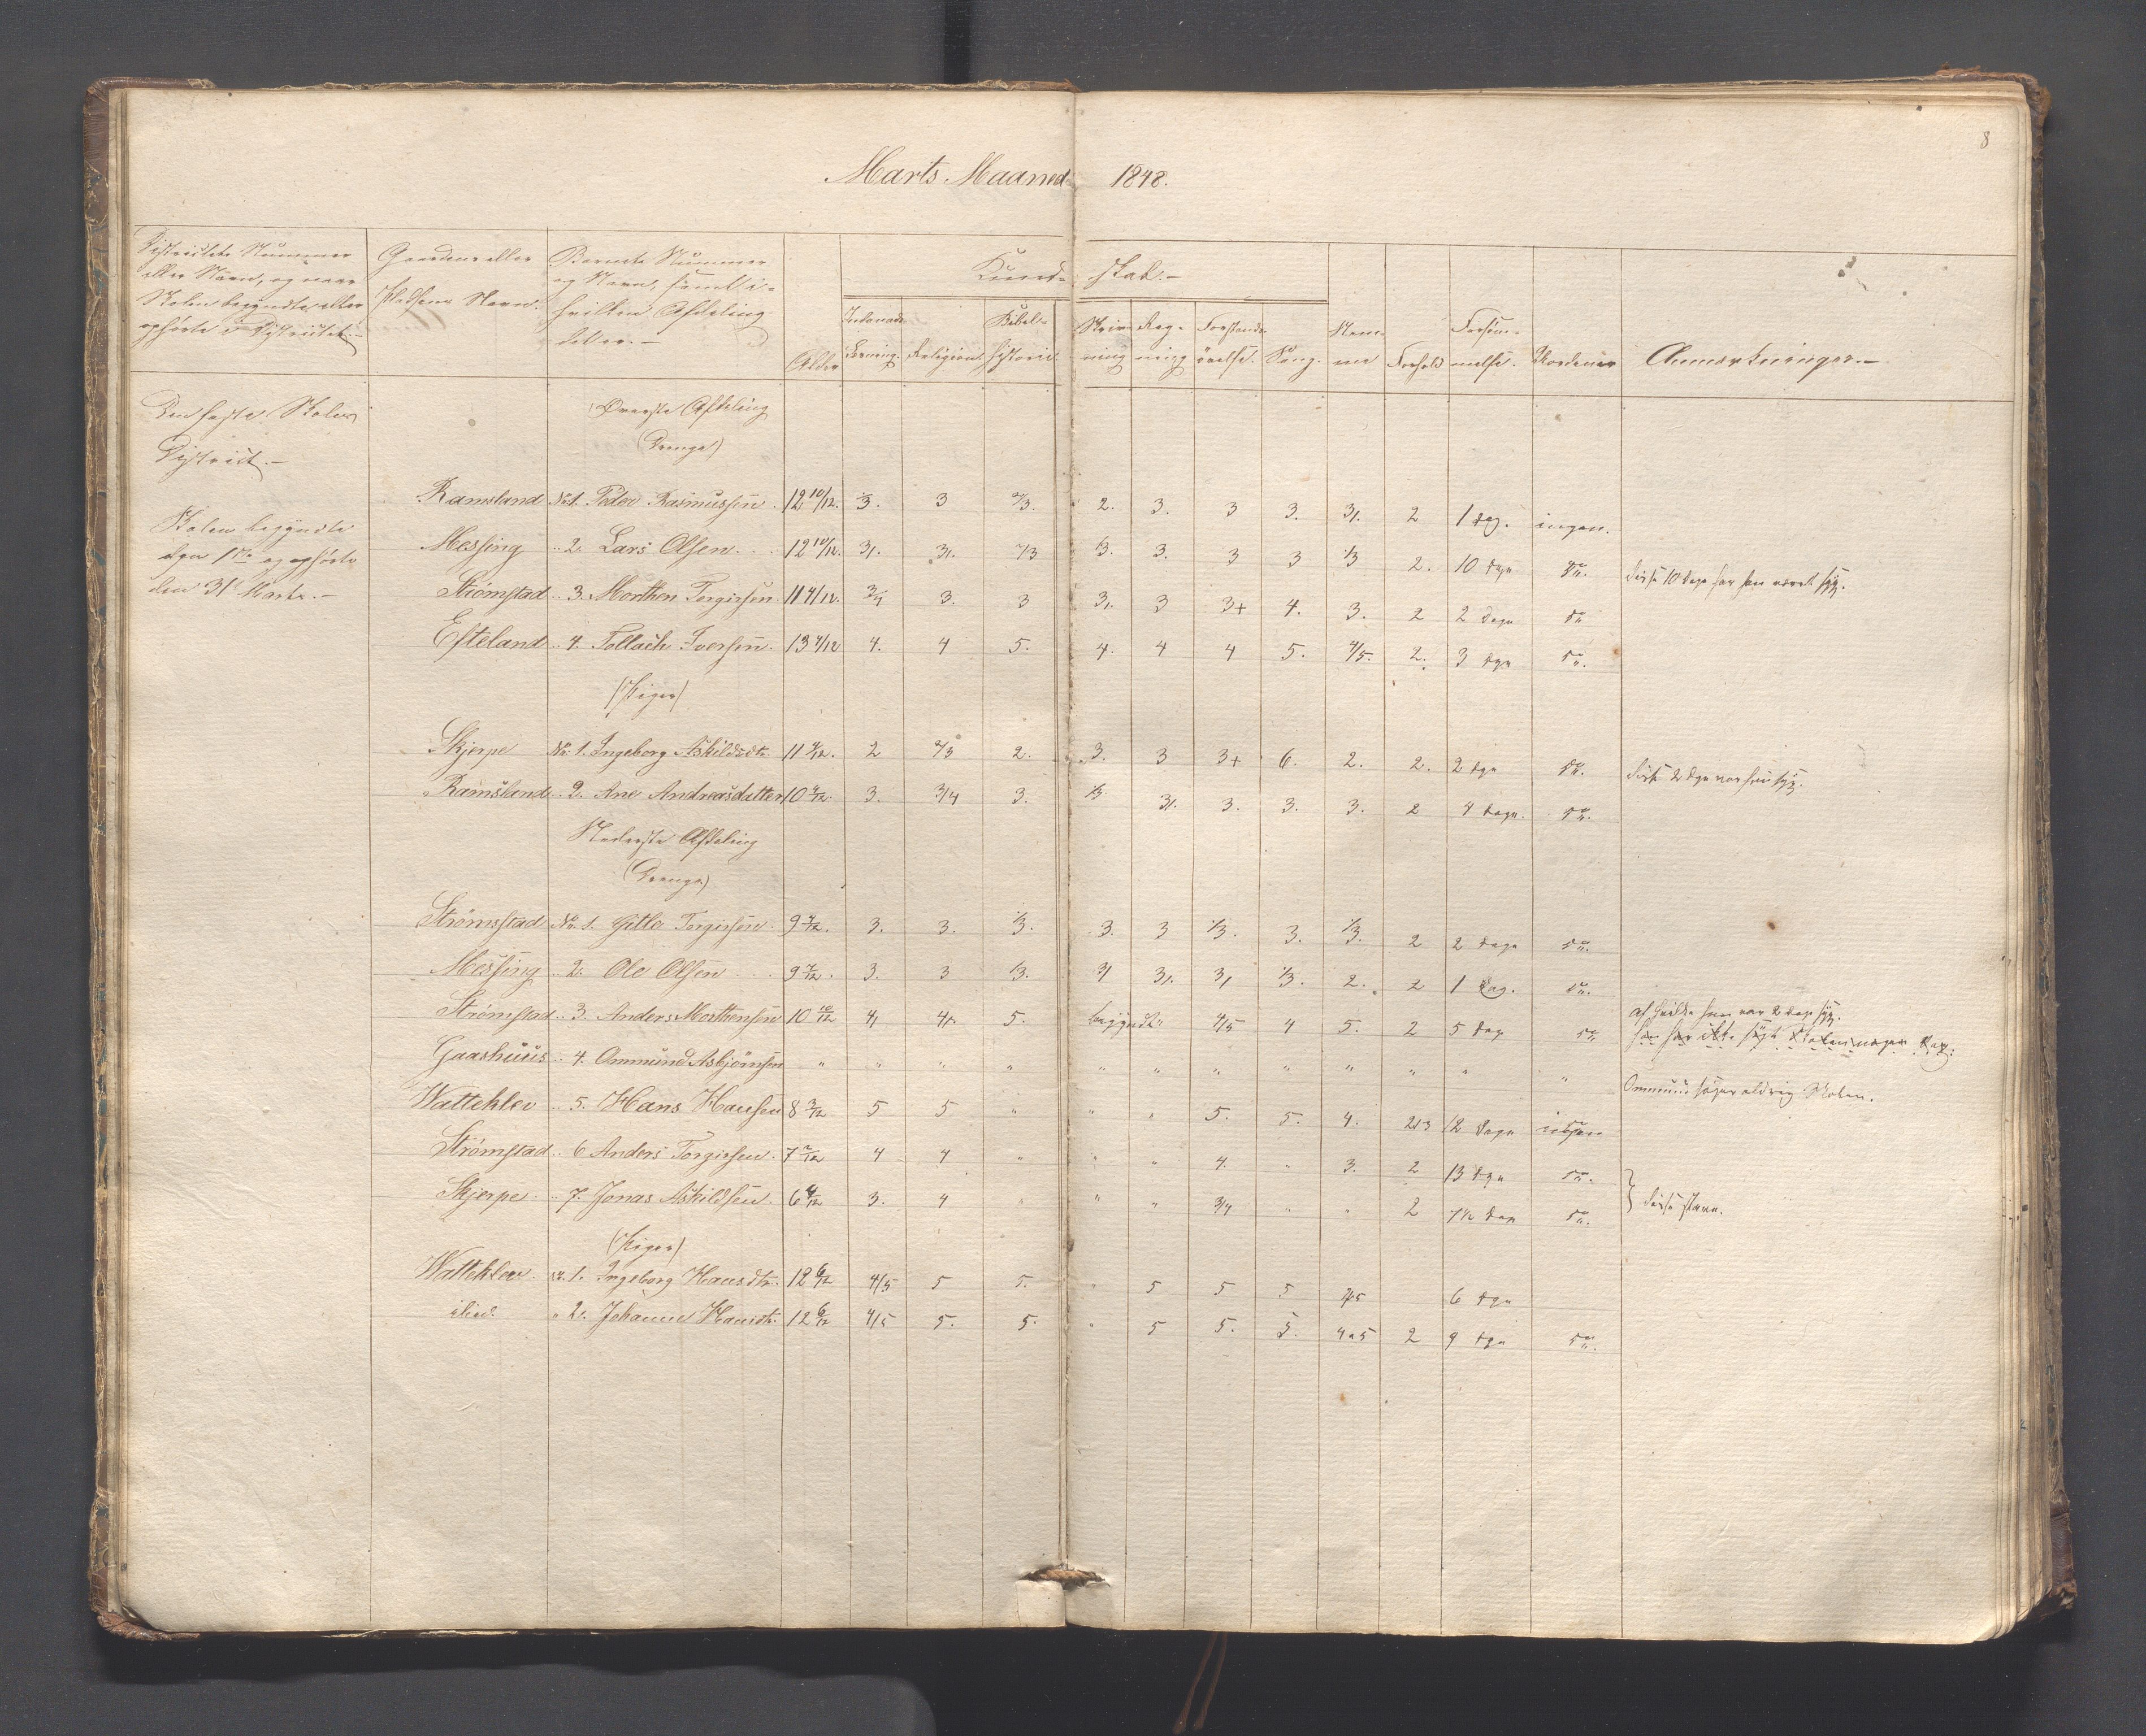 8
Marts Maaned 1848.
Districtets Nummer
eller Navn, og naar
Skolen begyndte eller
ophørte i Districtet.-
Gaardens eller
Pladsens Navn.
Barnets Nummer
og Navn, samt i
hvilken Afdeling
det er.-
Alder
Kund- skab.-
Indenads-
læsning.
Religion
Bibel-
historie
Skriv-
ning
Reg-
ning
Forstands-
øvelse.
Sang.
Nem-
me
Forhold
Forsøm-
melse.
Uordener
Anmærkninger.-
Den faste Skoles
District.-
Øverste Afdeling
(Drenge)
Ramsland No 1. Peder Rasmussen. 12 10/12. 3. 3 2/3. 2. 3. 3 3. 3/. 2 1 Dag. ingen.
Skolen begyndte
den 1ste og ophørte
den 31 Marts.-
Messing " 2. Lars Olsen. 12 10/12. 3/. 3/. /3 /3. 3. 3 3 /3 2. 10 Dage do. disse 10 Dage har han været syg.
Strömstad " 3. Morthen Torgiersen. 11 4/12. 3/4 3. 3 3/. 3 3+ 4. 3. 2 2 Dage do
Efteland " 4. Tollach Iversen. 13 4/12 4. 4 5. 4. 4 4 5. 4/5. 2. 3 Dge do.
(Piger)
Skjerpe No. 1. Ingeborg Askildsdtr. 11 9/12. 2 2/3 2. 3. 3 3+ 6. 2. 2. 2 Dge do. disse 2 Dge var hun syg.
Ramsland " 2. Ane Andreasdatter 10 9/12. 3. 3/4 3. /3. 3/. 3. 3. 3. 2 4 Dage. do.
Nederste Afdeling
(Drenge)
Strömstad No. 1. Gitle Torgiersen. 9 4/12. 3. 3. /3. 3. 3 /3. 3. /3. 2 2 Dage do.
Messing " 2. Ole Olsen 9 7/12. 3. 3 /3. 3/ 3/. 3/ /3. 2. 2 1 Dag. do.
Strömstad " 3. Anders Morthensen 10 10/12 4/ 4/. 5. begyndt " 4/5 4 5. 2 5 Dage do af hvilke han var 2 Dage syg.
han har ikke søgt Skolen nogen Dag.
Gaashuus " 4. Ommund Asbjörnsen " " " " " " " " " " " " " Ommund søger aldrig Skolen.
Wattekler " 5. Hans Hansen 8 3/12 5 5 " " " 5. 5. 4. 2/3 12 Dage ingen
Strömstad " 6 Anders Torgiersen. 7 2/12 4 4 " " " 4. " 3. 2 13 Dge do.
Skjerpe " 7. Jonas Askildsen. 6 4/12 3. 4 " " " 3/4 " " 2 7½ Dage do. } disse stave.
(Piger)
Wattekler No. 1. Ingeborg Hansdtr. 12 6/12 4/5 5 5. " 5 5 5 4/5 6 Dge
ibid. " 2. Johanne Hansdtr. 12 6/12 4/5 5. 5. " 5 5. 5. 4 a 5 2 9 Dge do.